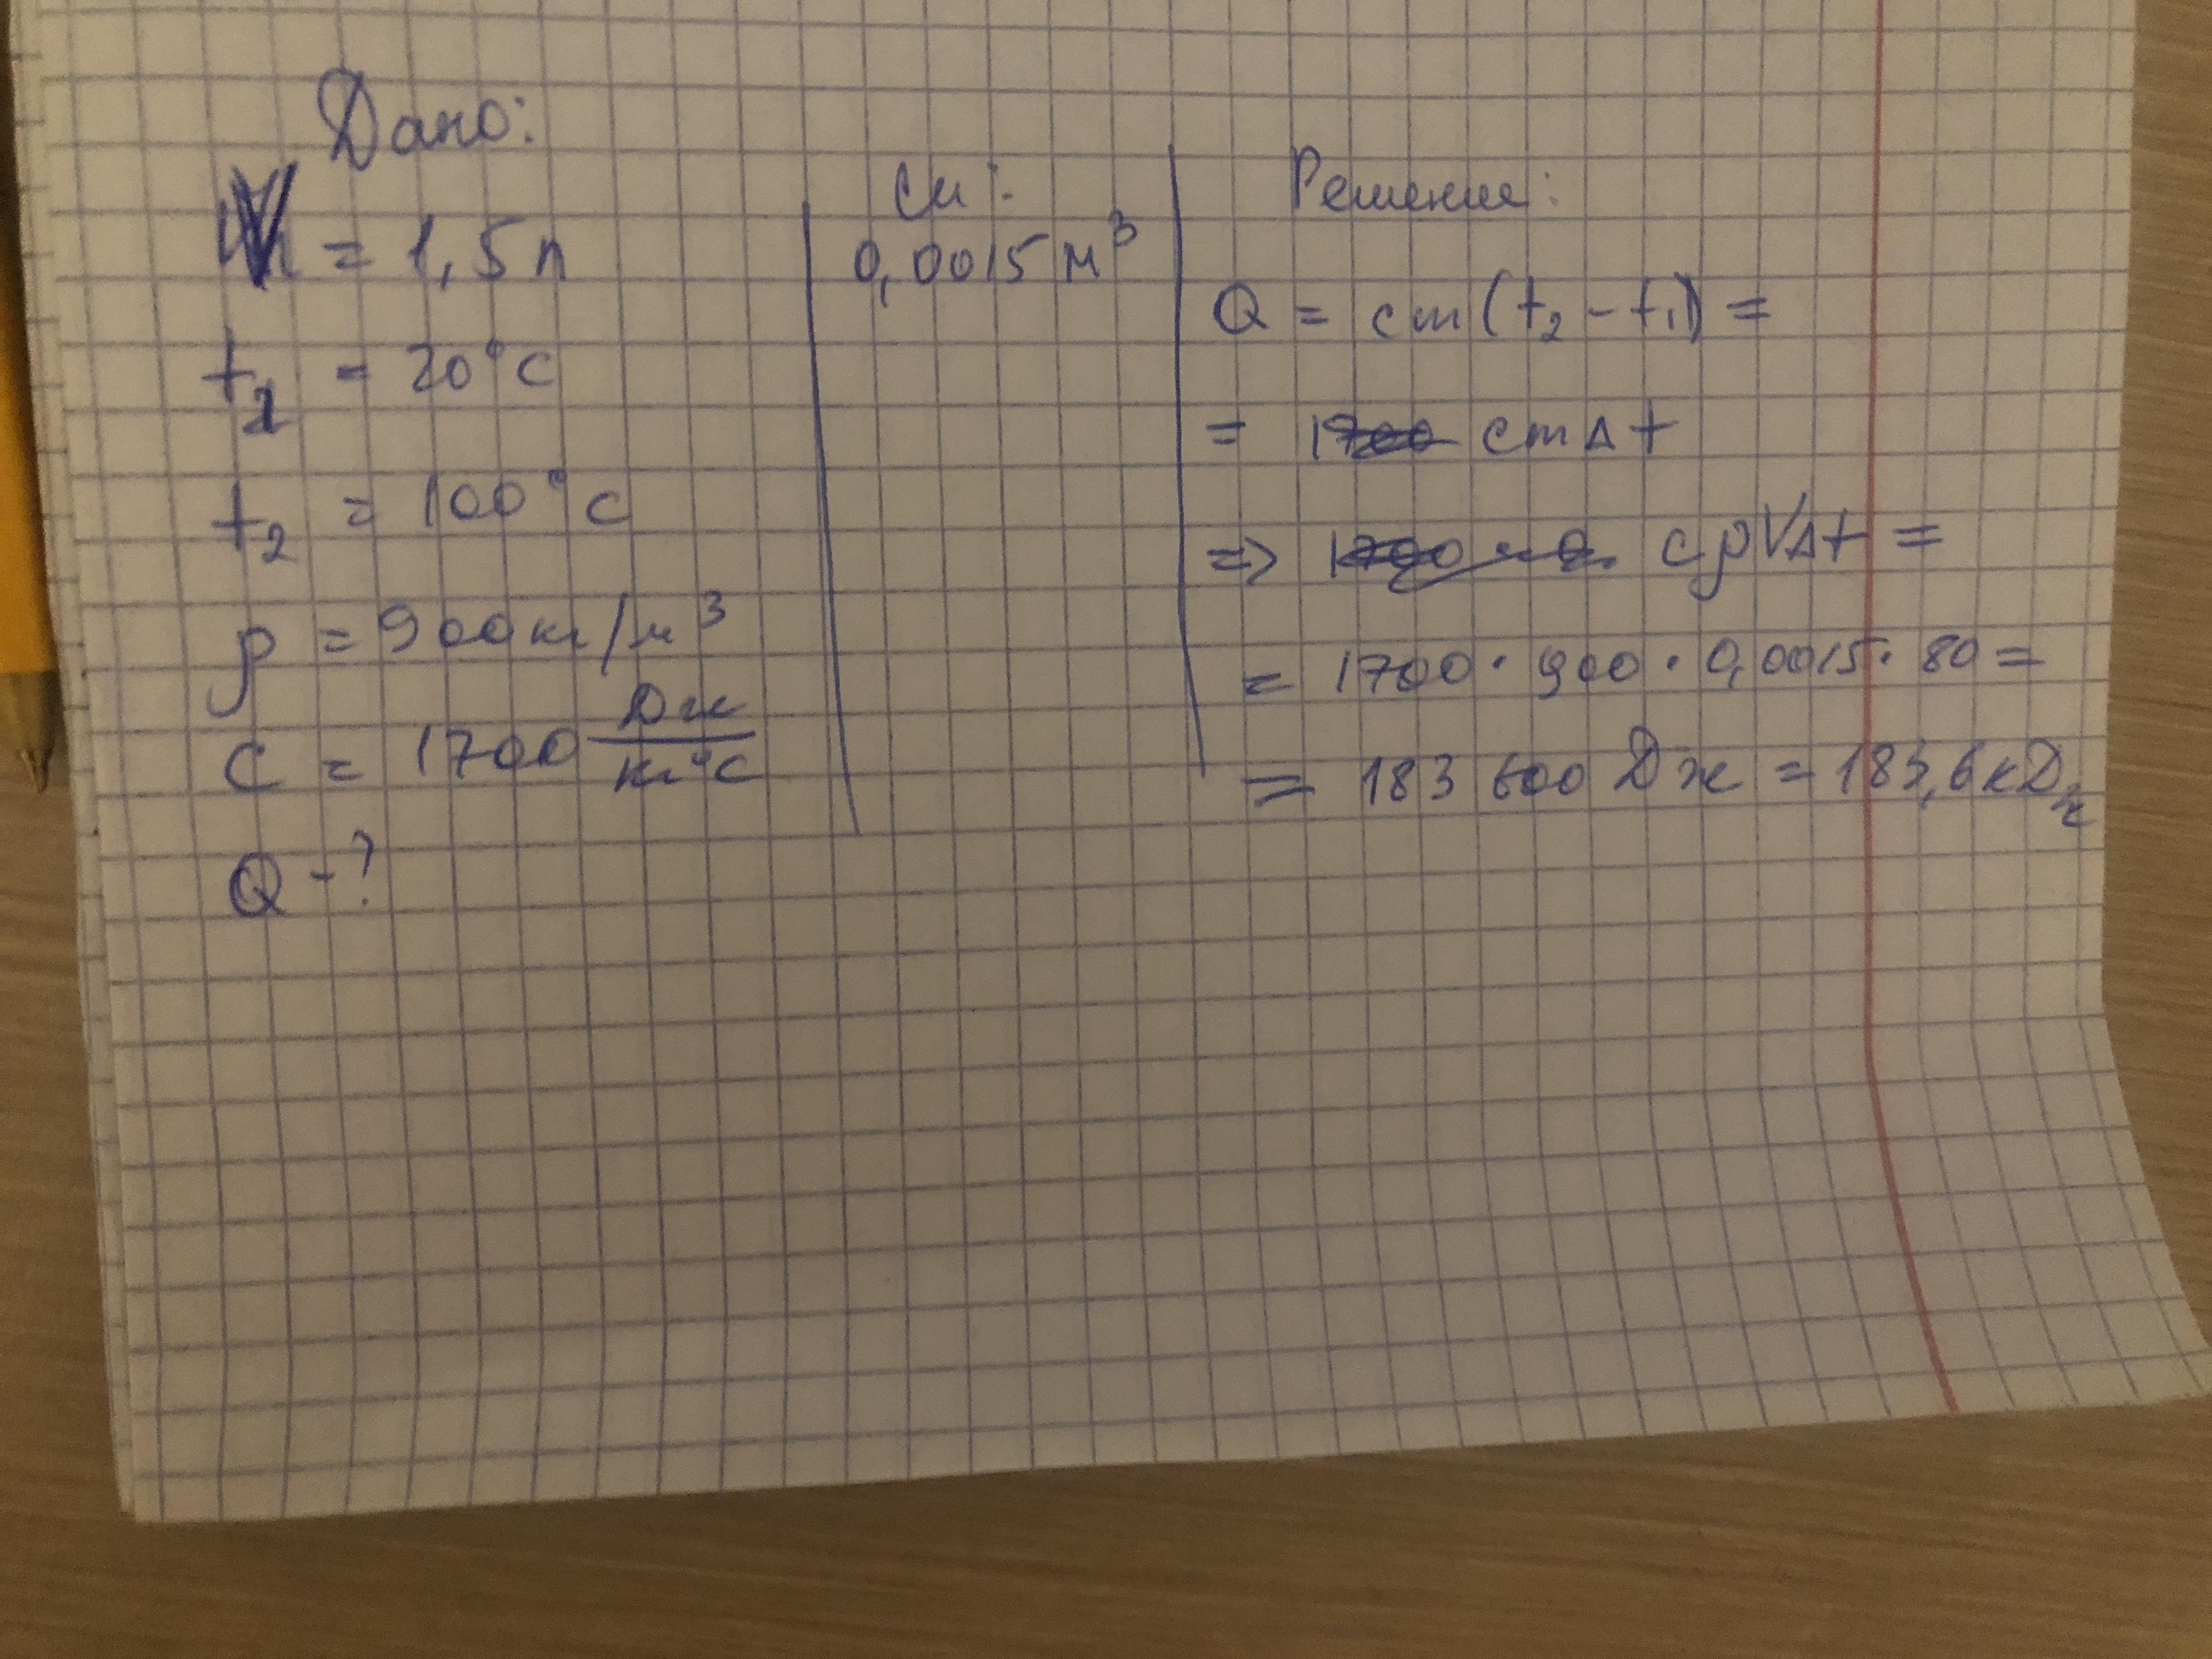 Дано:
V = 1,5 л
t₁ = 20°С
t₂ = 100°С
ρ = 900 кг/м³
С = 1700 Дж/кг°С
Q - ?
Си:
0,0015 м³
Решение:
Q = cm(t₂ - t₁) =
= cmΔt
=> cρVΔt =
= 1700 · 900 · 0,0015 · 80 =
= 183 600 Дж = 183,6 кДж